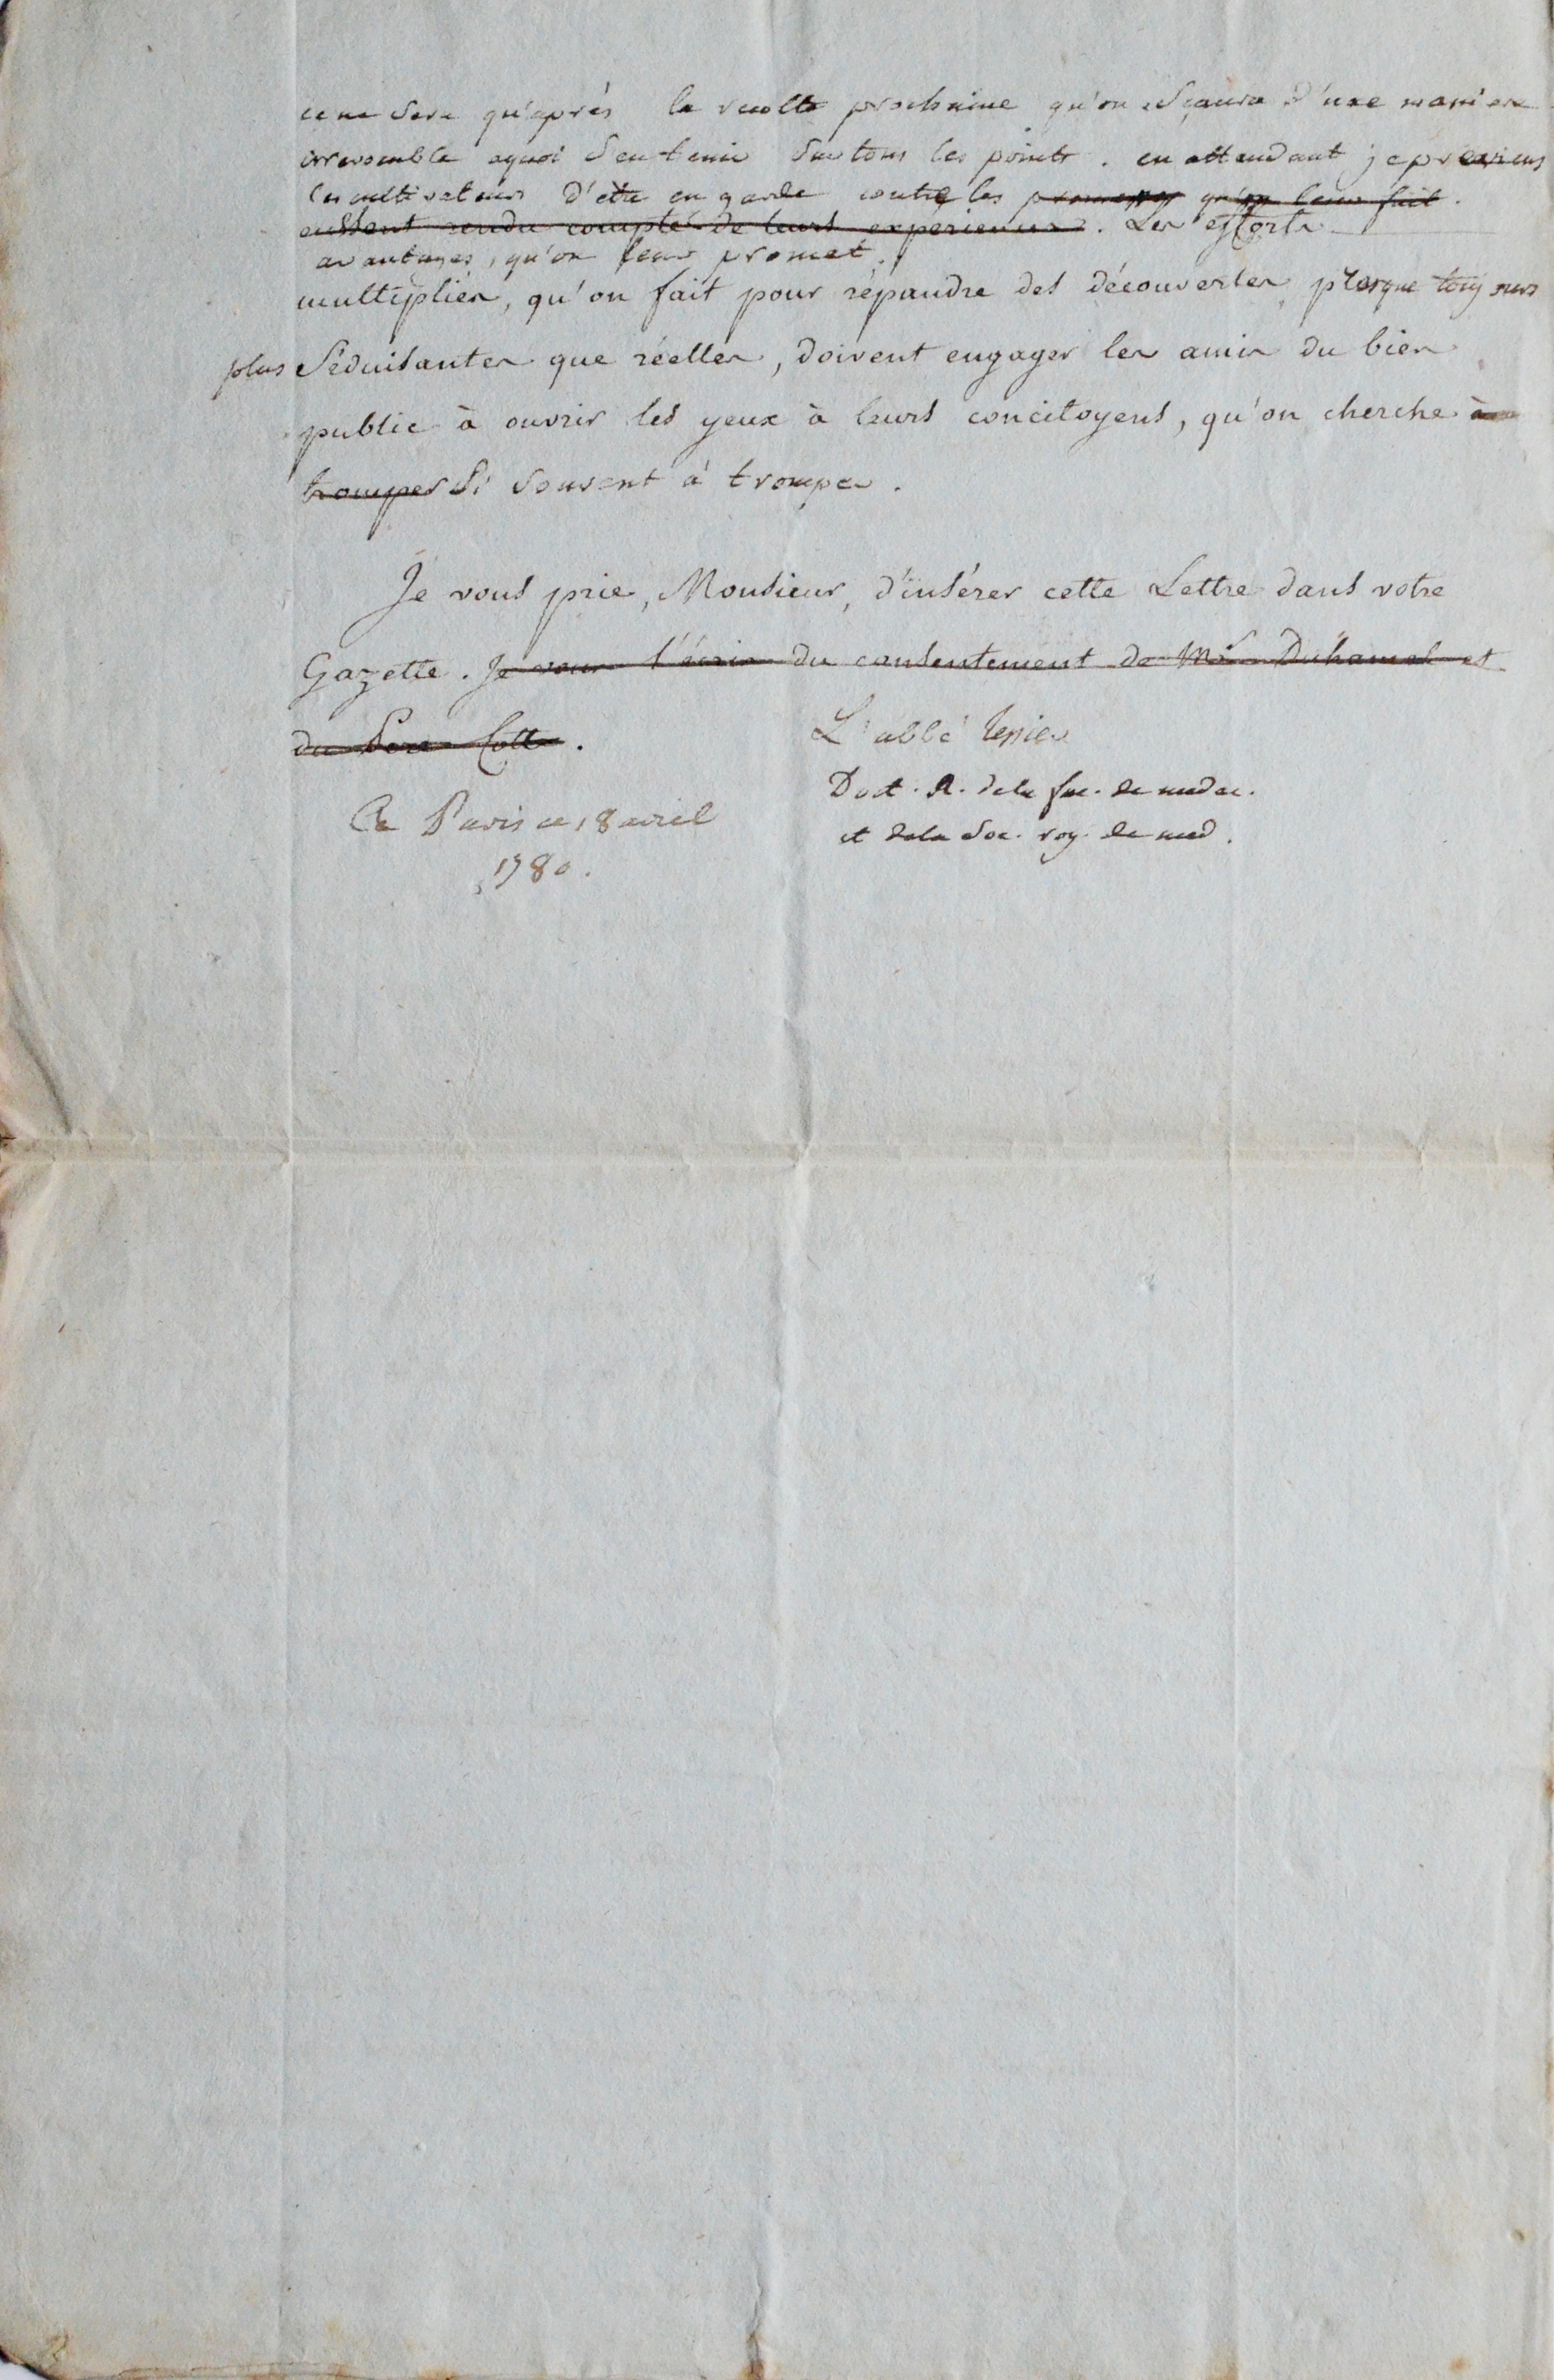 ce ne sera qu'après la recolte prochaine qu'on sçaura d'une maniere
aquoi s'en tenir sur tous les points. en attendant je previens
les cultivateurs d'être en garde contre les promesses qu'on leur fait.
eussent rendu compte de leurs experiences. Les efforts
avantages, qu'on leur promet.
multipliés, qu'on fait pour répandre des découvertes, presque toujours
plus séduisantes que réelles, doivent engager les amis du bien
public à ouvrir les yeux à leurs concitoyens, qu'on cherche à
tromper si souvent à tromper.
Je vous prie, Monsieur, d'insérer cette Lettre dans votre
Gazette. Je vous l'écris du consentement de Mr. Duhamel et
du Pere Cotte.
L'abbé Tessier
Doct. R. de la fac. de medec.
et de la Soc. roy. de med.
A Paris ce 18 avril
1780.